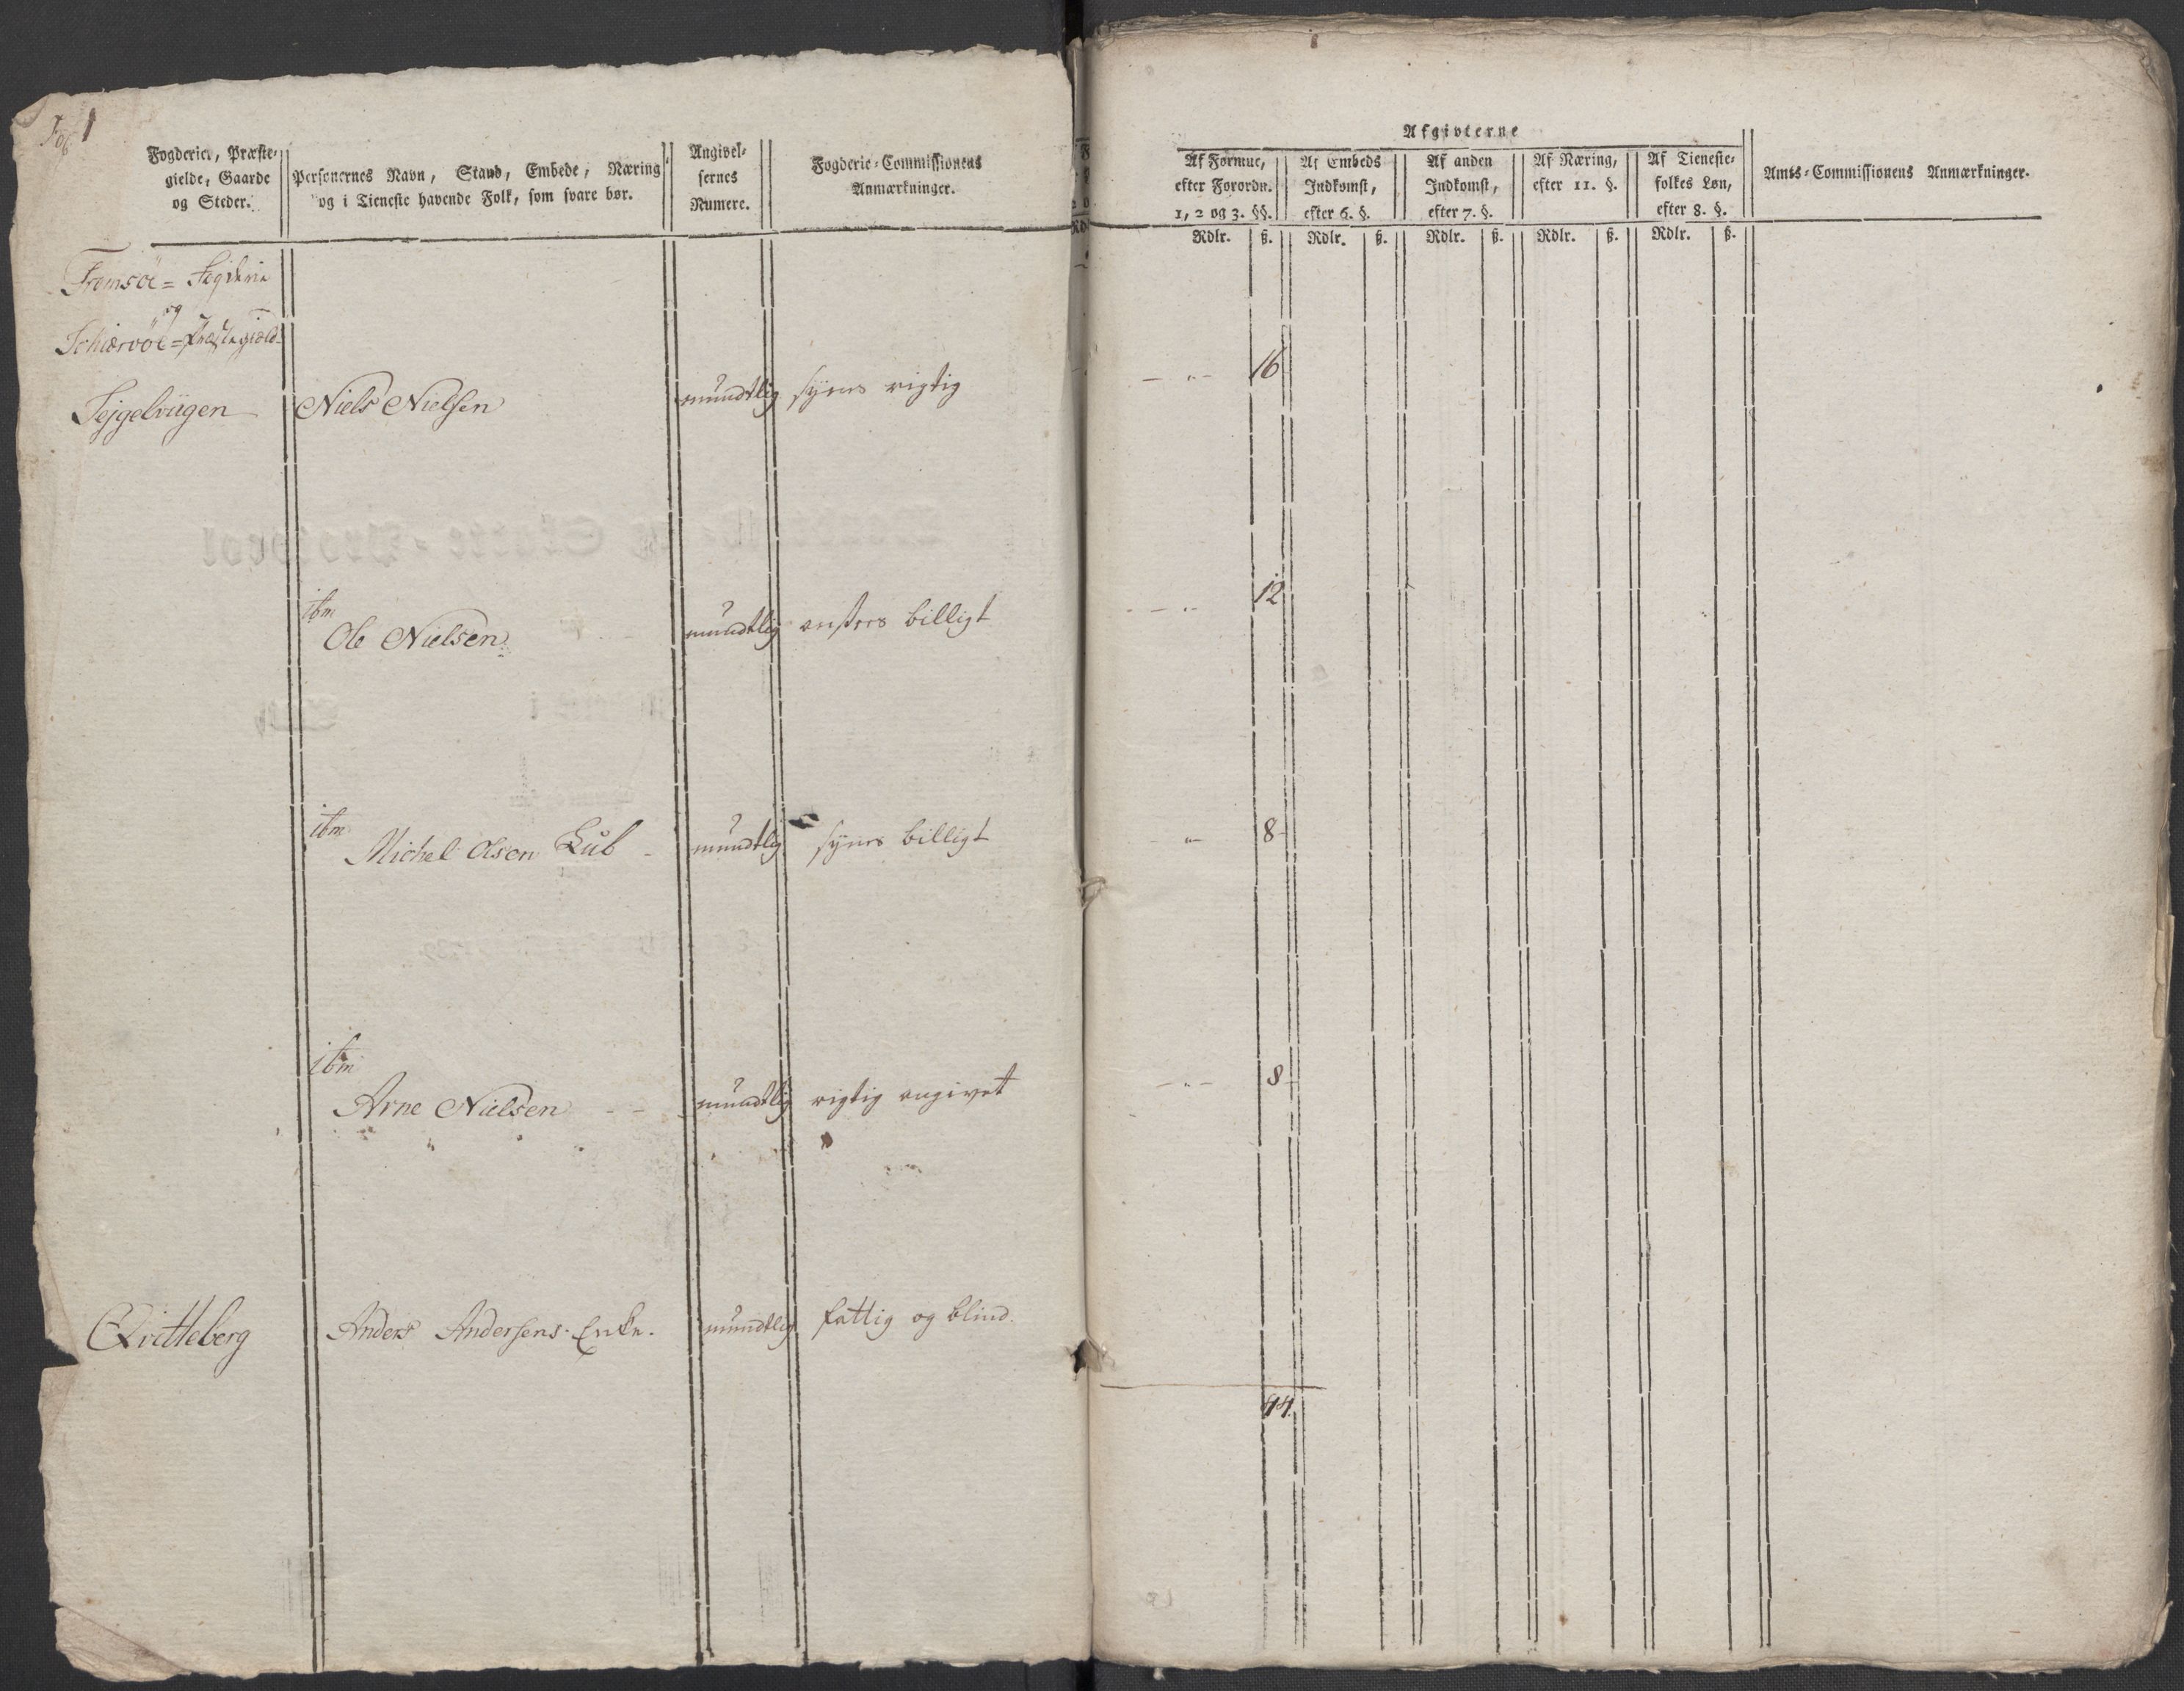 Fol 1
Fogderier, Præste-
gielde, Gaarde
og Steder.
Personernes Navn, Stand, Embede, Næring
og i Tieneste havende Folk, som svare bør.
Angivel-
sernes
Numere.
Fogderie-Commissionens
Anmærkninger.
Tromsöe = Fogderie
og
Schiærvöe = Præstegield
Sejgelviigen Niels Nielsen mundtlig synes rigtig
ibm
Ole Nielsen mundtlig ansees billigt
ibm
Michel Olsen Qub mundtlig synes billigt
ibm
Arne Nielsen mundtlig rigtig angivet
Qvitteberg Anders Andersens Enke. mundtlig fattig og blind.
Afgivterne
Af Formue,
efter Forordn.
1, 2 og 3. §§.
Af Embeds
Indkomst,
efter 6. §.
Af anden
Indkomst,
efter 7. §.
Af Næring,
efter 11. §.
Af Tieneste-
folkes Løn,
efter 8. §.
Amts-Commissionens Anmærkninger.
Rdlr. ß. Rdlr. ß. Rdlr. ß. Rdlr. ß. Rdlr. ß.
— „ — 16
— „ 12
„ 8
— „ — 8
44